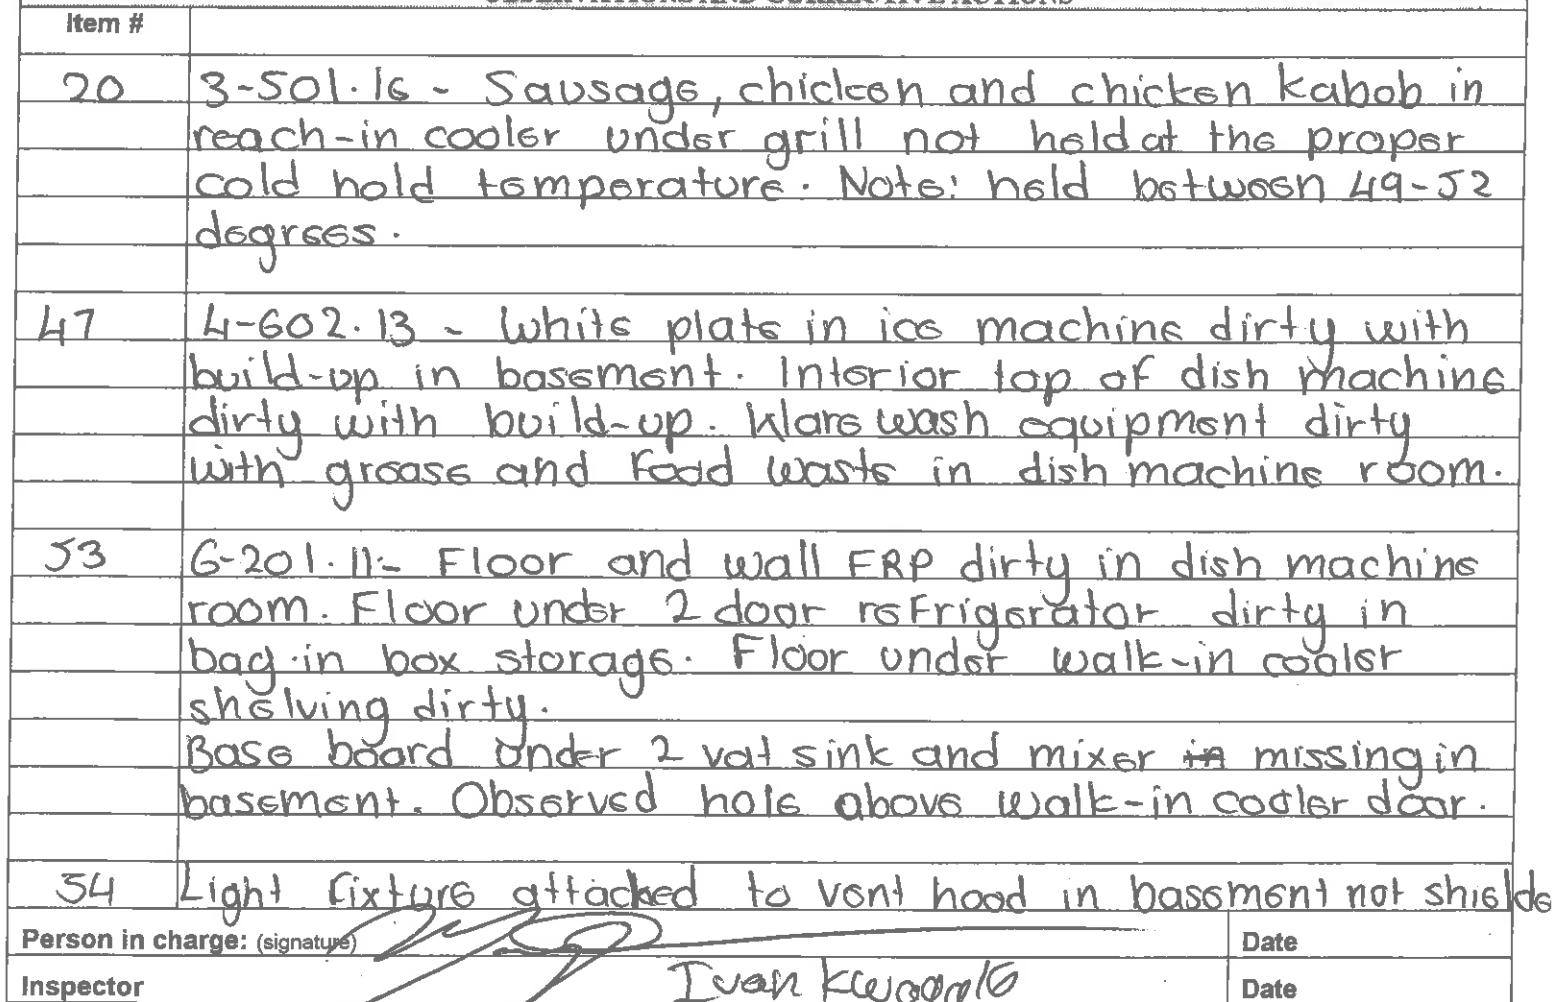 OBSERVATIONS AND CORRECTIVE ACTIONS
Item #
20 3-501.16 - Sausage, chicken and chicken kabob in
reach-in cooler under grill not held at the proper
cold hold temperature. Note: held between 49-52
degrees.
47 4-602.13 - White plate in ice machine dirty with
build-up in basement. Interior top of dish machine
dirty with build-up. Klare wash equipment dirty
with grease and food waste in dish machine room.
53 6-201.11:- Floor and wall FRP dirty in dish machine
room. Floor under 2 door refrigerator dirty in
bag-in box storage. Floor under walk-in cooler
shelving dirty.
Base board under 2 vat sink and mixer in missing in
basement. Observed hole above walk-in cooler door.
54 Light fixture attacked to vent hood in basement not shielde
Person in charge: (signature) Date
Inspector Ivan Date